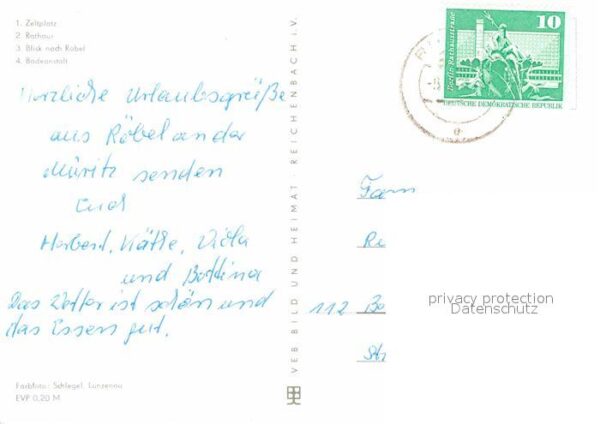 1. Zeltplatz
2. Rathaus
3. Blick nach Röbel
4. Badeanstalt
Herzliche Urlaubsgrüße
aus Röbel an der
Müritz senden
Euch
Herbert, Käthe, Viola
und Bettina
Das Wetter ist schön und
das Essen gut.
Farbfoto: Schlegel, Lunzenau
EVP 0,20 M
VEB BILD UND HEIMAT · REICHENBACH i. V.
10
Berlin-Rathausstraße
DEUTSCHE DEMOKRATISCHE REPUBLIK
Fam
112 Be
privacy protection
Datenschutz